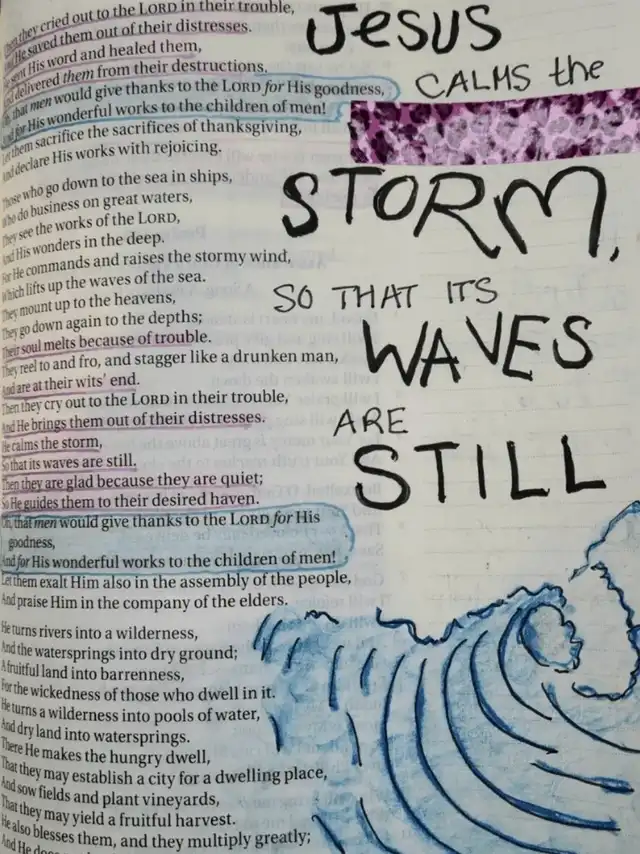 Then they cried out to the LORD in their trouble,
And He saved them out of their distresses.
He sent His word and healed them,
And delivered them from their destructions.
Oh, that men would give thanks to the LORD for His goodness,
And for His wonderful works to the children of men!
Let them sacrifice the sacrifices of thanksgiving,
And declare His works with rejoicing.
Those who go down to the sea in ships,
Who do business on great waters,
They see the works of the LORD,
And His wonders in the deep.
For He commands and raises the stormy wind,
Which lifts up the waves of the sea.
They mount up to the heavens,
They go down again to the depths;
Their soul melts because of trouble.
They reel to and fro, and stagger like a drunken man,
And are at their wits' end.
Then they cry out to the LORD in their trouble,
And He brings them out of their distresses.
He calms the storm,
So that its waves are still.
Then they are glad because they are quiet;
So He guides them to their desired haven.
Oh, that men would give thanks to the LORD for His
goodness,
And for His wonderful works to the children of men!
Let them exalt Him also in the assembly of the people,
And praise Him in the company of the elders.
He turns rivers into a wilderness,
And the watersprings into dry ground;
A fruitful land into barrenness,
For the wickedness of those who dwell in it.
He turns a wilderness into pools of water,
And dry land into watersprings.
There He makes the hungry dwell,
That they may establish a city for a dwelling place,
And sow fields and plant vineyards,
That they may yield a fruitful harvest.
He also blesses them, and they multiply greatly;
And He does
JESUS
CALMS the
STORM,
SO THAT ITS
WAVES
ARE
STILL